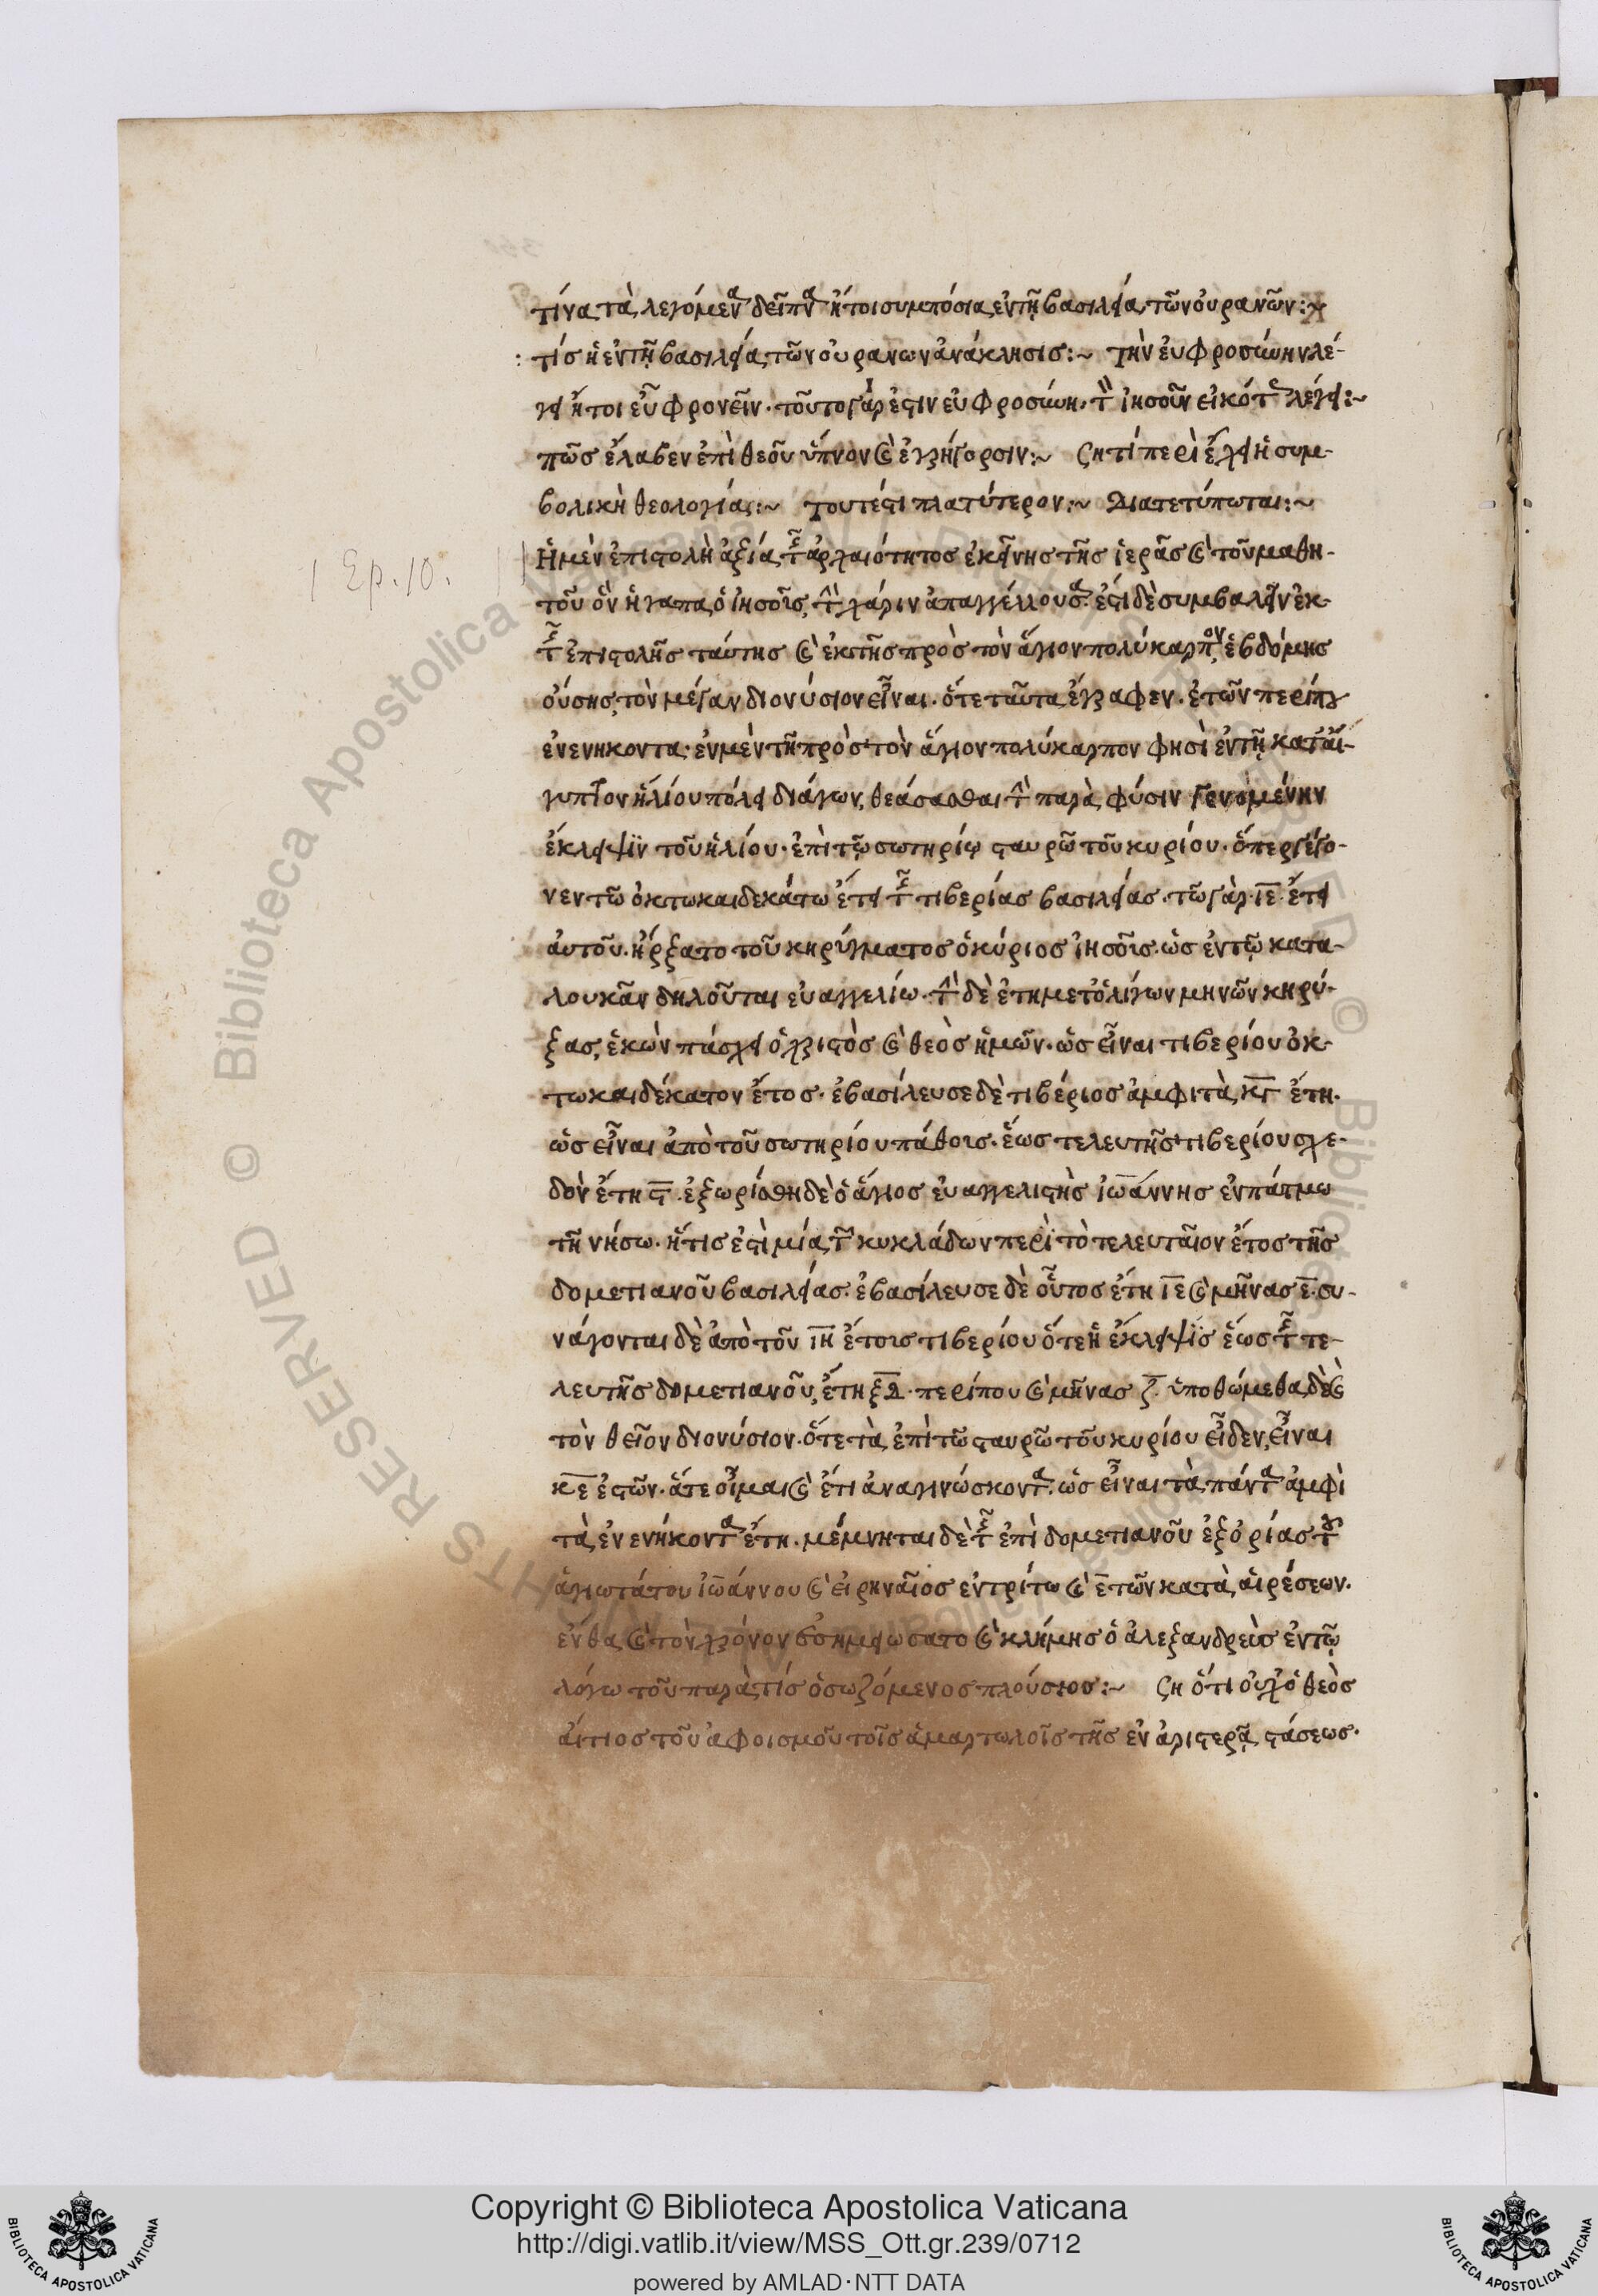 τίνα τὰ λεγόμενα δεῖπνα ἤτοι συμπόσια ἐν τῇ βασιλείᾳ τῶν οὐρανῶν:
: τίσ ἡ ἐν τῇ βασιλεία τῶν οὐρανων ἀνάκλησισ:~ τὴν ἐυφροσύνην λέ-
γει ἤτοι εὖ φρονεῖν· τοῦτο γάρ ἐστιν εὐφροσύνη· τὸν ἰησοῦν εἰκότως λέγει:~
πῶσ ἔλαβεν ἐπὶ θεοῦ ὕπνον καὶ ἐγρήγορσιν:~ ση τί περιέχει ἡ συμ-
βολικὴ θεολογίας:~ τουτέστι πλατύτερον:~ Διατετύπωται:~
Ἡ μὲν ἐπιστολὴ ἀξία τῆς ἀρχαιότητος ἐκείνης τῆς ἱερᾶσ καὶ τοῦ μαθη-
τοῦ ὃν ἠγαπα ὁ ἰησοῦς, τὴν χάριν ἀπαγγέλλουσα. ἔστι δὲ συμβαλεῖν ἐκ
τῆς ἐπιστολῆσ ταύτησ καὶ ἐκ τῆσ πρὸσ τὸν ἅγιον πολύκαρπον, ἑβδόμησ
οὔσησ, τὸν μέγαν διονύσιον εἶναι· ὅτε ταῦτα ἔγραφεν· ἐτῶν περίπου
ἐνενηκοντα· ἐν μὲν τῇ πρὸσ τὸν ἅγιον πολύκαρπον φησὶ ἐν τῇ κατ' αἴ-
γυπτον ἡλίου πόλει διάγων, θεάσασθαι τὴν παρὰ φύσιν γενομένην
ἔκλειψϊν τοῦ ἡλίου· ἐπὶ τῷ σωτηρίῳ σταυρῶ τοῦ κυρίου· ὅπερ γέγο-
νεν τῶ ὀκτωκαιδεκάτω ἔτει τῆς τιβερίας βασιλείας· τῶ γὰρ ιε ἔτει
ἀυτοῦ· ἤρξατο τοῦ κηρύγματοσ ὁ κύριοσ ἰησοῦσ. ὡσ ἐν τῷ κατα-
λουκᾶν δηλοῦται ευαγγελίω· τρία δὲ ἔτη μετ' ὀλίγων μηνῶν κηρύ-
ξας, ἑκὼν πάσχει ὁ χριστὸσ καὶ θεὸσ ἡμῶν· ὡσ εἶναι τιβερίου ὀκ-
τωκαιδέκατον ἔτοσ· ἐβασίλευσε δὲ τιβέριοσ ἀμφι τὰ κγ ἔτη·
ὡσ εἶναι ἀπὸ τοῦ σωτηρίου πάθουσ· ἕωσ τελευτῆσ τιβερίου σχε-
δὸν ἔτη ϛ. ἐξωρίσθη δὲ ὁ ἅγιοσ ἐυαγγελιστὴσ ἰωάννησ ἐν πάτμω
τῆ νήσω· ἥτισ ἐστὶ μία τῶν κυκλάδων περὶ τὸ τελευταῖον ἔτοσ τῆσ
δομετιανοῦ βασιλείασ. ἐβασίλευσε δὲ οὗτοσ ἔτη ιε καὶ μῆνασ ε. συ-
νάγονται δὲ ἀπὸ τοῦ ιη ἔτουσ τιβερίου ὅτε ἡ ἔκλειψϊσ ἕωσ τῆς τε-
λευτῆσ δομετιανοῦ, ἔτη ξδ· περίπου καὶ μῆνασ ζ. ὑποθώμεθα δὲ καὶ
τὸν θεῖον διονύσιον· ὅτε τὰ ἐπὶ τῶ σταυρῶ τοῦ κυρίου εἶδεν, εἶναι
κε ἐτῶν· ἅτε οἶμαι καὶ ἔτι ἀναγινώσκοντα. ὡσ εἶναι τὰ πάντα ἀμφὶ
τὰ ἐνενήκοντα ἔτη· μέμνηται δὲ τῆς ἐπὶ δομετιανοῦ ἐξορίασ τοῦ
ἁγιωτάτου ἰωάννου καὶ εἰρηναῖοσ ἐν τρίτω καὶ ε τῶν κατὰ αἱρέσεων·
ἔνθα καὶ τὸν χρόνον ἐσημειωσατο καὶ κλήμησ ὁ ἀλεξανδρεὺσ ἐν τῷ
λόγω τοῦ παρὰ τίσ ὁ σωζόμενοσ πλούσιοσ:~ ση ὅτι οὐχ' ὁ θεὸσ
ἀίτιοσ τοῦ ἀφοισμοῦ τοῖσ ἁμαρτωλοῖσ τῆσ ἐν ἀριστερᾷ στάσεωσ·
1 Ep. 10.
Copyright © Biblioteca Apostolica Vaticana
http://digi.vatlib.it/view/MSS_Ott.gr.239/0712
powered by AMLAD·NTT DATA
BIBLIOTECA APOSTOLICA VATICANA
BIBLIOTECA APOSTOLICA VATICANA